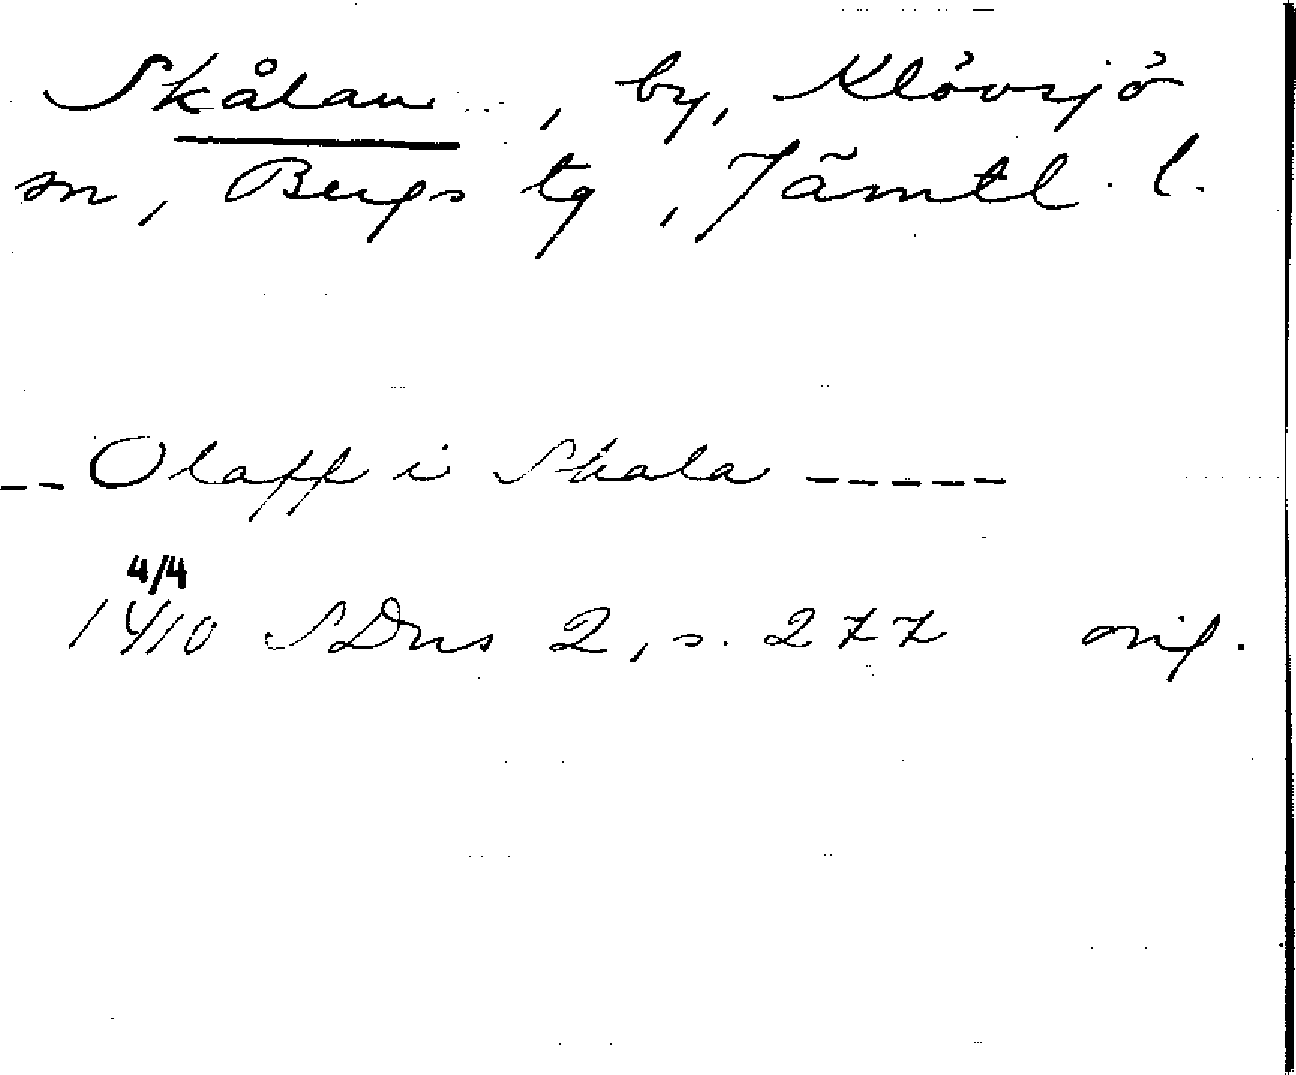 Skålan, by, Klövsjö
sn, Bergs tg, Jämtl. l.
-- Olaff i Skala -----
4/4
1410 SDns 2, s. 277 orig.